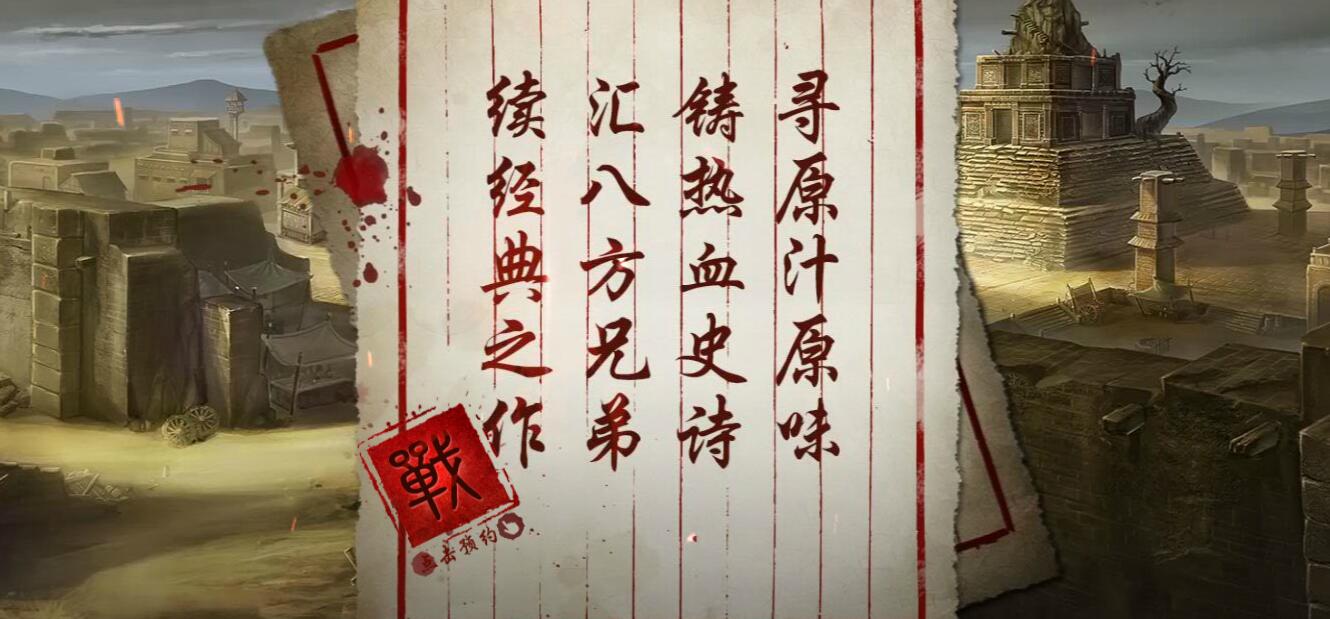 寻原汁原味
铸热血史诗
汇八方兄弟
续经典之作
戰
点击预约